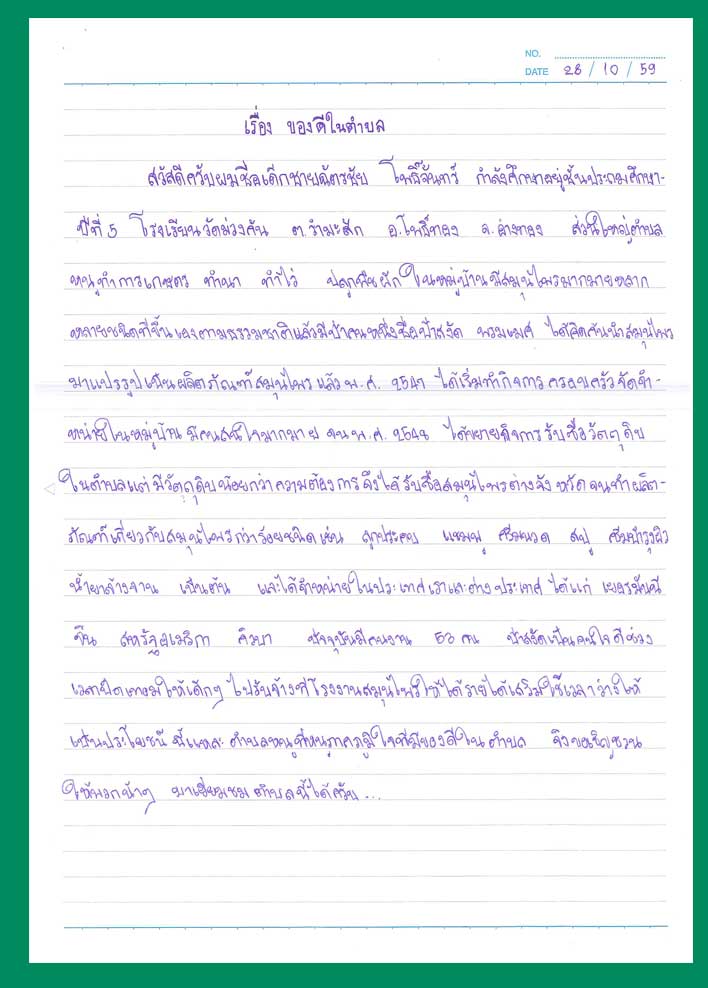 NO.
DATE 28 / 10 / 59
เรื่อง ของดีในตำบล
สวัสดีครับผมชื่อเด็กชายฉัตรชัย โพธิ์จันทร์ กำลังศึกษาอยู่ชั้นประถมศึกษา-
ปีที่ 5 โรงเรียนวัดม่วงคัน ต.รำมะสัก อ.โพธิ์ทอง จ.อ่างทอง ส่วนใหญ่ตำบล
หนูทำการเกษตร ทำนา ทำไร่ ปลูกพืชผัก ในหมู่บ้านมีสมุนไพรมากมายหลาก
หลายชนิดที่ขึ้นเองตามธรรมชาติแล้วมีป้าคนหนึ่งชื่อป้าสงัด ได้คิดค้นนำสมุนไพร
มาแปรรูปเป็นผลิตภัณฑ์สมุนไพร แล้ว พ.ศ. 2541 ได้เริ่มทำกิจการครอบครัวจัดจำ-
หน่ายในหมู่บ้าน มีคนสนใจมากมาย จน พ.ศ. 2548 ได้ขยายกิจการรับซื้อวัตถุดิบ
ในตำบลแต่มีวัตถุดิบน้อยกว่าความต้องการ จึงได้รับซื้อสมุนไพรต่างจังหวัดจนทำผลิต-
ภัณฑ์เกี่ยวกับสมุนไพรกว่าร้อยชนิด เช่น ลูกประคบ แชมพู ครีมนวด สบู่ ครีมบำรุงผิว
น้ำยาล้างจาน เป็นต้น และได้จำหน่ายในประเทศเราและต่างประเทศ ได้แก่ เยอรมันนี
จีน สหรัฐอเมริกา คิวบา ปัจจุบันมีคนงาน 53 คน ป้าสงัดเป็นคนใจดีช่วง
เวลาปิดเทอมให้เด็กๆ ไปรับจ้างที่โรงงานสมุนไพรให้ได้รายได้เสริมใช้เวลาว่างให้
เป็นประโยชน์ นี่แหละตำบลหนูที่หนูภาคภูมิใจที่มีของดีในตำบล จึงขอเชิญชวน
ให้พวกน้าๆ มาเยี่ยมชมตำบลนี้ได้ครับ...